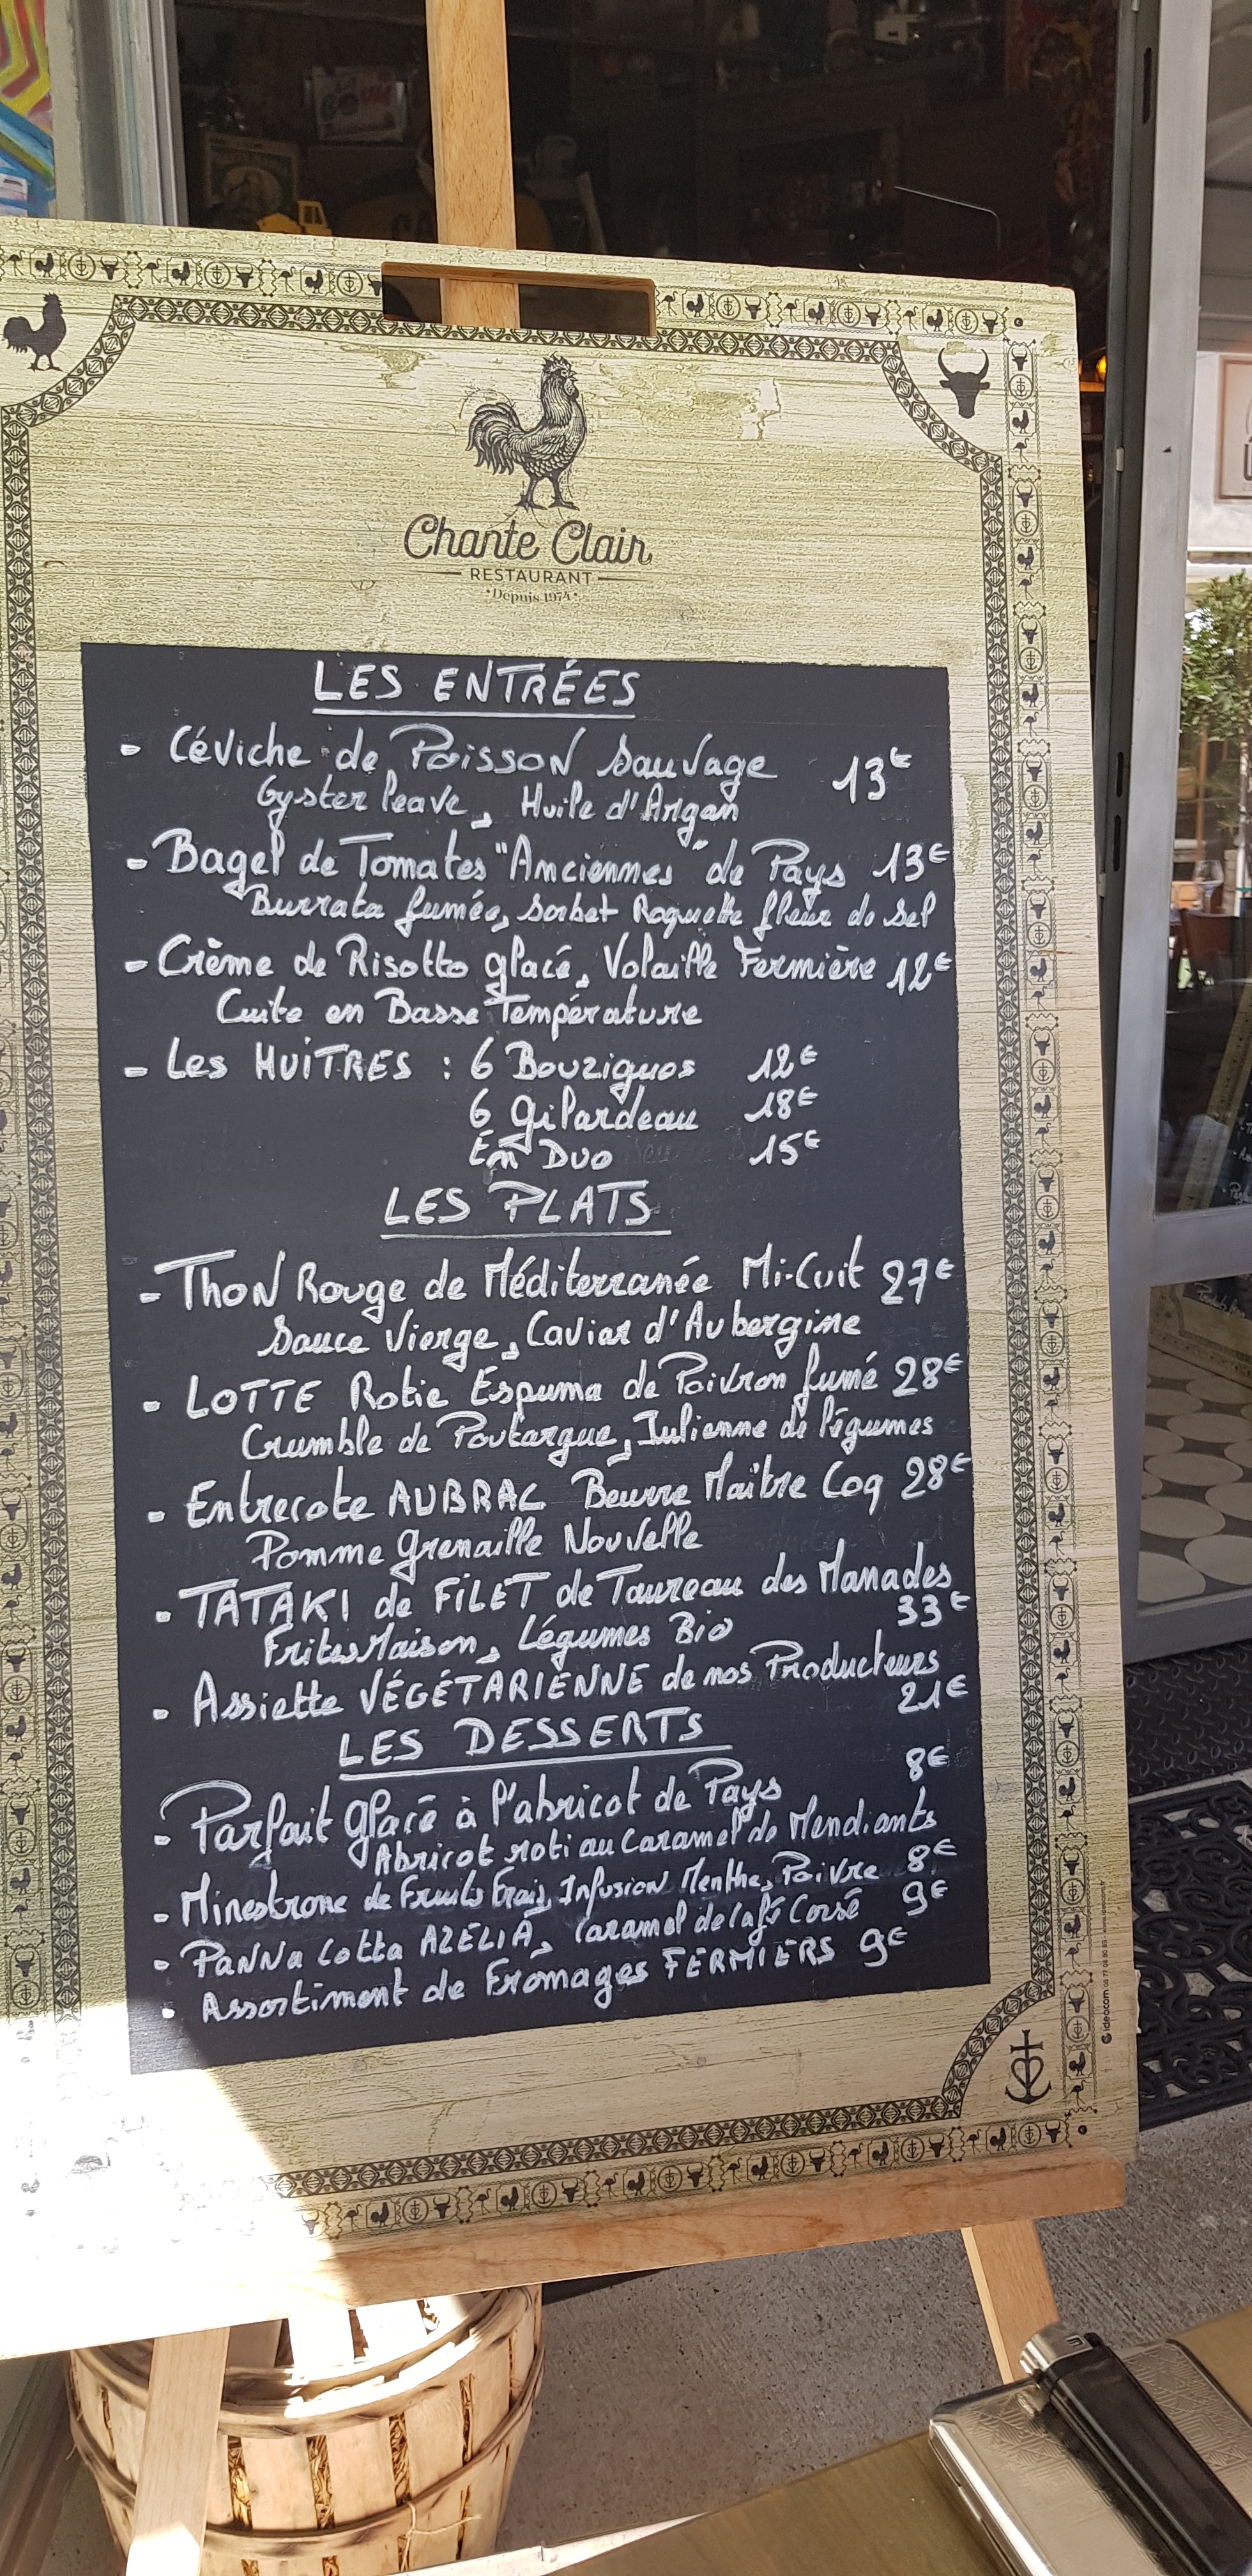 Chante Clair
RESTAURANT
Depuis 1974
LES ENTRÉES
- Céviche de Poisson Sauvage 13€
Oyster leave, Huile d'Argan
- Bagel de Tomates "Anciennes" de Pays 13€
Burrata fumée, Sorbet Roquette fleur de Sel
- Crème de Risotto glacé, Volaille Fermière 12€
Cuite en Basse Température
- Les HUÎTRES : 6 Bouzigues 12€
6 Gilardeau 18€
En Duo 15€
LES PLATS
- THON Rouge de Méditerranée Mi-Cuit 27€
Sauce Vierge, Caviar d'Aubergine
- LOTTE Rotie Espuma de Poivron fumé 28€
Crumble de Poutargue, Julienne de légumes
- Entrecote AUBRAC Beurre Maître Coq 28€
Pomme Grenaille Nouvelle
- TATAKI de FILET de Taureau des Manades
33€
Frites Maison, Légumes Bio
- Assiette VÉGÉTARIENNE de nos Producteurs
21€
LES DESSERTS
8€
- Parfait glacé à l'abricot de Pays
Abricot roti au Caramel de Mendiants
- Minestrone de Fruits Frais, Infusion Menthe, Poivre 8€
- PANNA Cotta AZELIA, Caramel de Café Corsé 9€
- Assortiment de Fromages FERMIERS 9€
ideocom